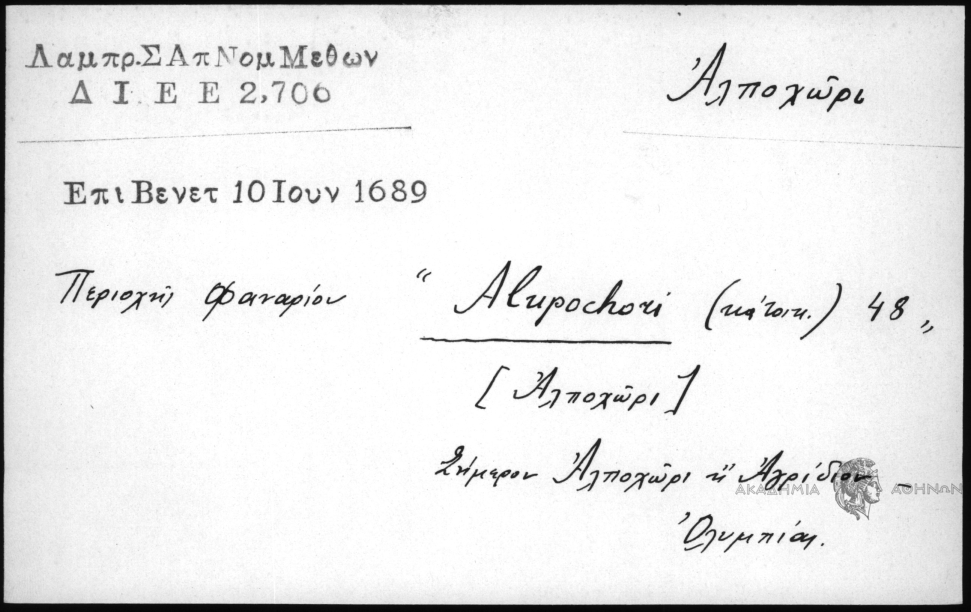 Λαμπρ.ΣΑπ Νομ Μεθων
Ἀλποχῶρι
Δ Ι Ε Ε 2,706
Επι Βενετ 10 Ιουν 1689
Περιοχῆς Φαναρίου " Alupochori (κάτοικ.) 48 "
[Ἀλποχῶρι]
Σήμερον Ἀλποχῶρι ἤ Ἀγρίδιον –
Ὀλυμπίας.
ΑΚΑΔΗΜΙΑ ΑΘΗΝΩΝ